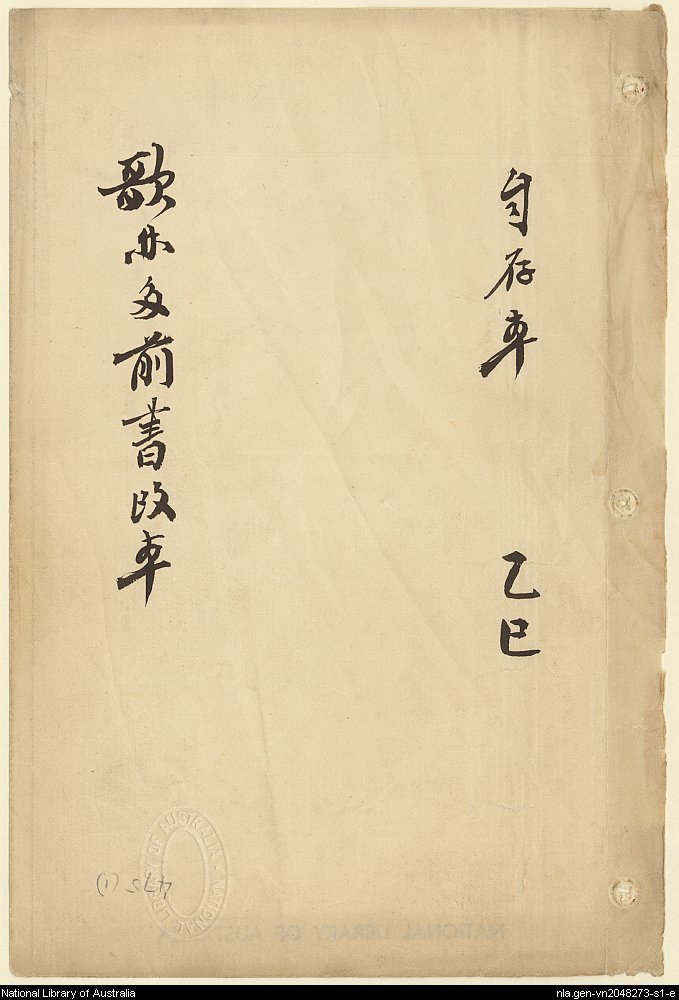 自存本 乙巳
歌林多前書改本
NATIONAL LIBRARY OF AUSTRALIA
NATIONAL LIBRARY OF AUSTRALIA
National Library of Australia
nla.gen-vn2048273-s1-e